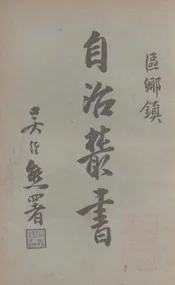 區鄉鎮
自治叢書
吳經熊署